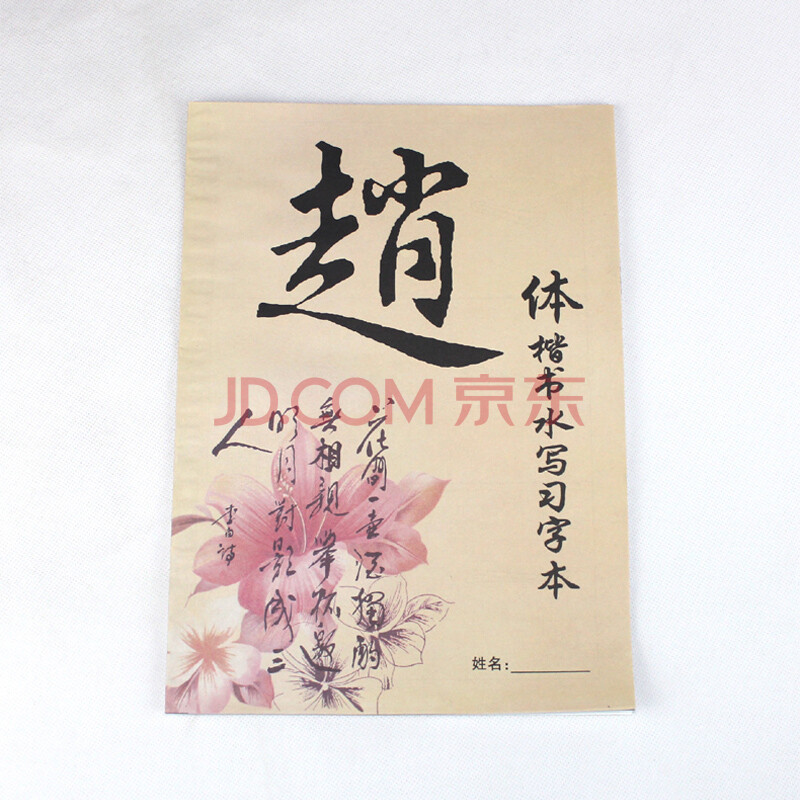 趙
体楷书水写习字本
花間一壶酒獨酌
無相親舉杯邀
明月對影成三
人
李白詩
姓名:
JD.COM 京东